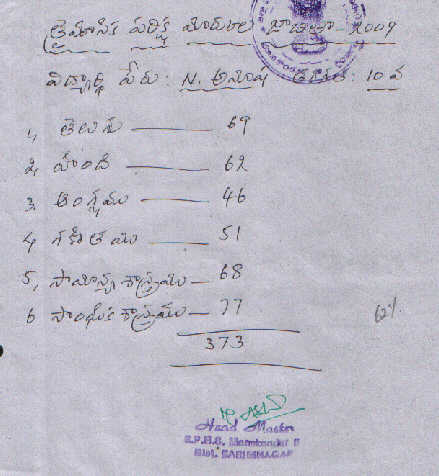 త్రైమాసిక పరీక్ష మార్కుల జాబితా - 2009
విద్యార్థి పేరు : N. అనూష తరగతి : 10 వ
1, తెలుగు — 69
2, హింది — 62
3, ఆంగ్లము — 46
4, గణితము — 51
5, సామాన్య శాస్త్రము — 68
6 సాంఘీక శాస్త్రము — 77
373
62%
Head Master
Dist. KARIMNAGAR